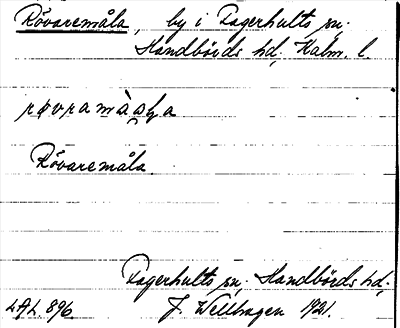 Rövaremåla, by i Fagerhults sn.
Handbörds hd, Kalm. l.
Rövaremåla
Fagerhults sn, Handbörds hd.
LAL 896 J. Wellhagen 1921.